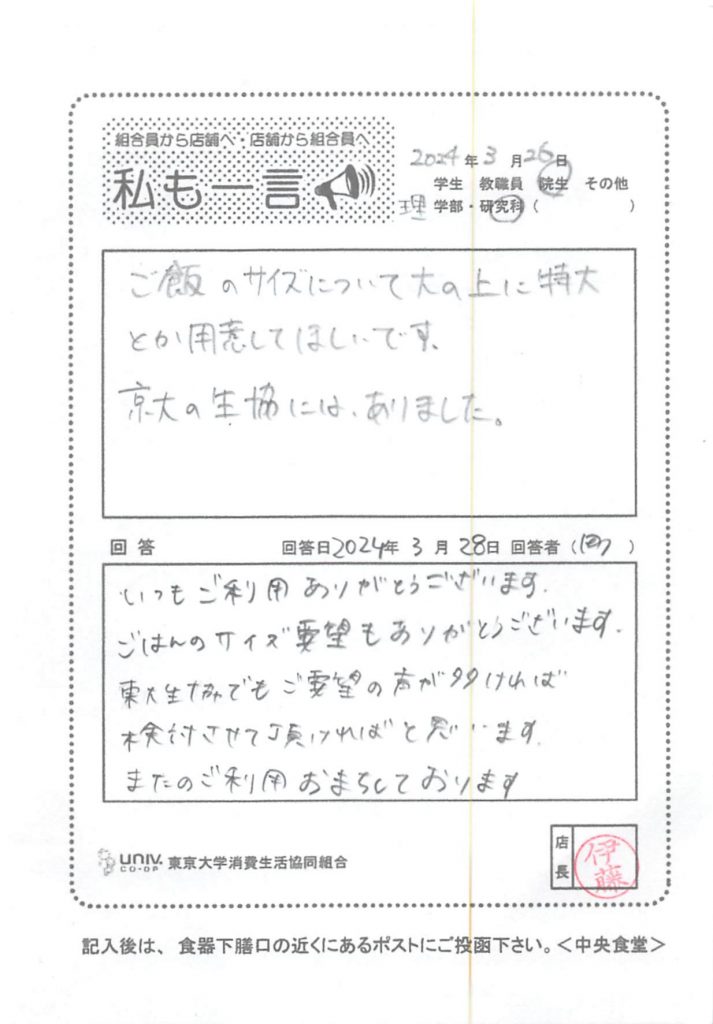 組合員から店舗へ・店舗から組合員へ
私も一言
2024年3月26日
学生 教職員 院生 その他
理 学部・研究科( )
ご飯のサイズについて大の上に特大
とか用意してほしいです。
京大の生協には、ありました。
回答 回答日2024年3月28日 回答者( )
いつもご利用ありがとうございます.
ごはんのサイズ要望もありがとうございます.
東大生協でもご要望の声が多ければ
検討させて頂ければと思います.
またのご利用おまちしております
店長
伊藤
UNIV. CO-OP 東京大学消費生活協同組合
記入後は、食器下膳口の近くにあるポストにご投函下さい。<中央食堂>